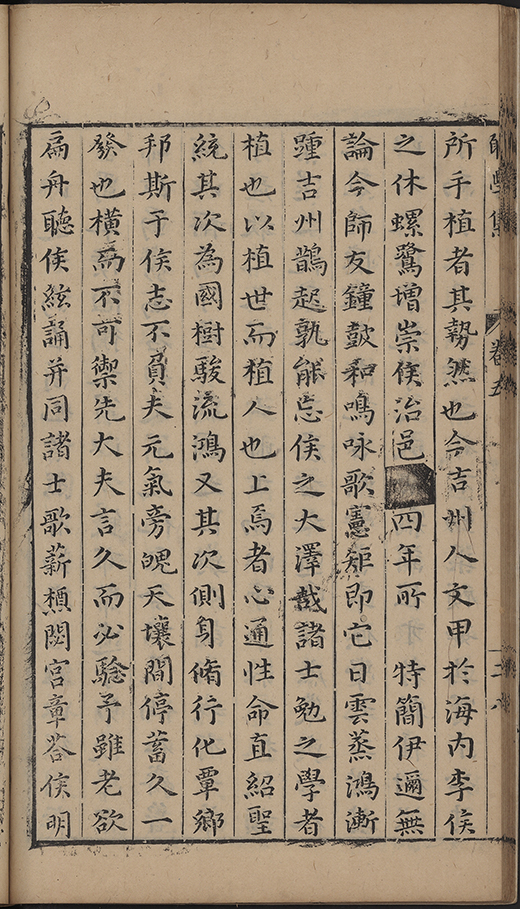 卷五
所手植者其勢然也今吉州人文甲於海內李侯
之休螺鷺增崇侯治邑四年所 特簡伊邇無
論今師友鐘鼓和鳴咏歌憲矩即它日雲蒸鴻漸
踵吉州鵲起孰能忘侯之大澤哉諸士勉之學者
植也以植世而植人也上焉者心通性命直紹聖
統其次為國樹駿流鴻又其次側身脩行化覃鄉
邦斯于侯志不負夫元氣旁魄天壤間停蓄久一
發也橫而不可禦先大夫言久而必驗予雖老欲
扁舟聽侯絃誦并同諸士歌薪槱閟宮章荅侯明